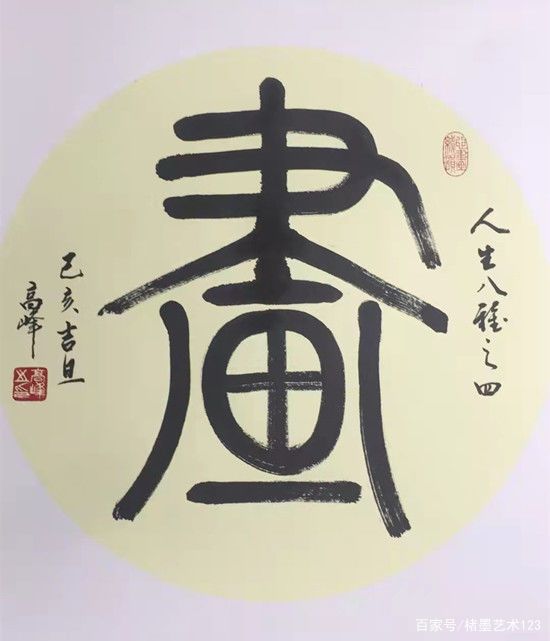 人生八雅之四
畫
己亥吉旦
高峰
百家号/楮墨艺术123